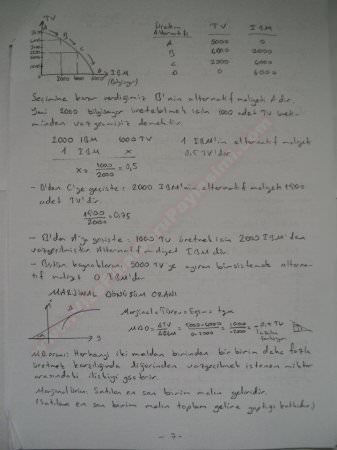 TV
IBM
(Bilgisayar)
Üretim Alternatifi TV IBM
A 5000 0
B 4000 2000
C 4000
D 0
Seçimine karar verdiğimiz B'nin alternatif maliyeti A'dır.
Yani 2000 bilgisayar üretebilmek için 1000 adet TV üreti-
minden vazgeçmemiz demektir.
2000 IBM 1000 TV 1 IBM'in alternatif maliyeti
1 IBM x 0,5 TV'dir.
x = 1000/2000 = 0,5
- B'den C'ye geçişte: 2000 IBM'nin alternatif maliyeti 1500
adet TV'dir.
1500/2000 = 0,75
- B'den A'ya geçişte: 1000 TV üretmek için 2000 IBM'den
vazgeçilmiştir. Alternatif maliyet IBM'dir.
- Bütün kaynaklarını 5000 TV'ye ayıran bir sistemde alterna-
tif maliyet 0 IBM'dir.
MARJİNAL DÖNÜŞÜM ORANI
Marjinal = Türev = Eğim = tga
MDO = ΔTV/ΔIBM = 5000-4000/0-2000 = 1000/-2000 = -0,5 TV
M.D.oranı: Herhangi iki maldan birinden bir birim daha fazla
üretmek karşılığında diğerinden vazgeçilmek istenen miktar
arasındaki ilişkiyi gösterir.
Marjinal Ürün: Satılan en son birim malın geliridir.
(Satılan en son birim malın toplam gelire yaptığı katkıdır.)
- 7 -